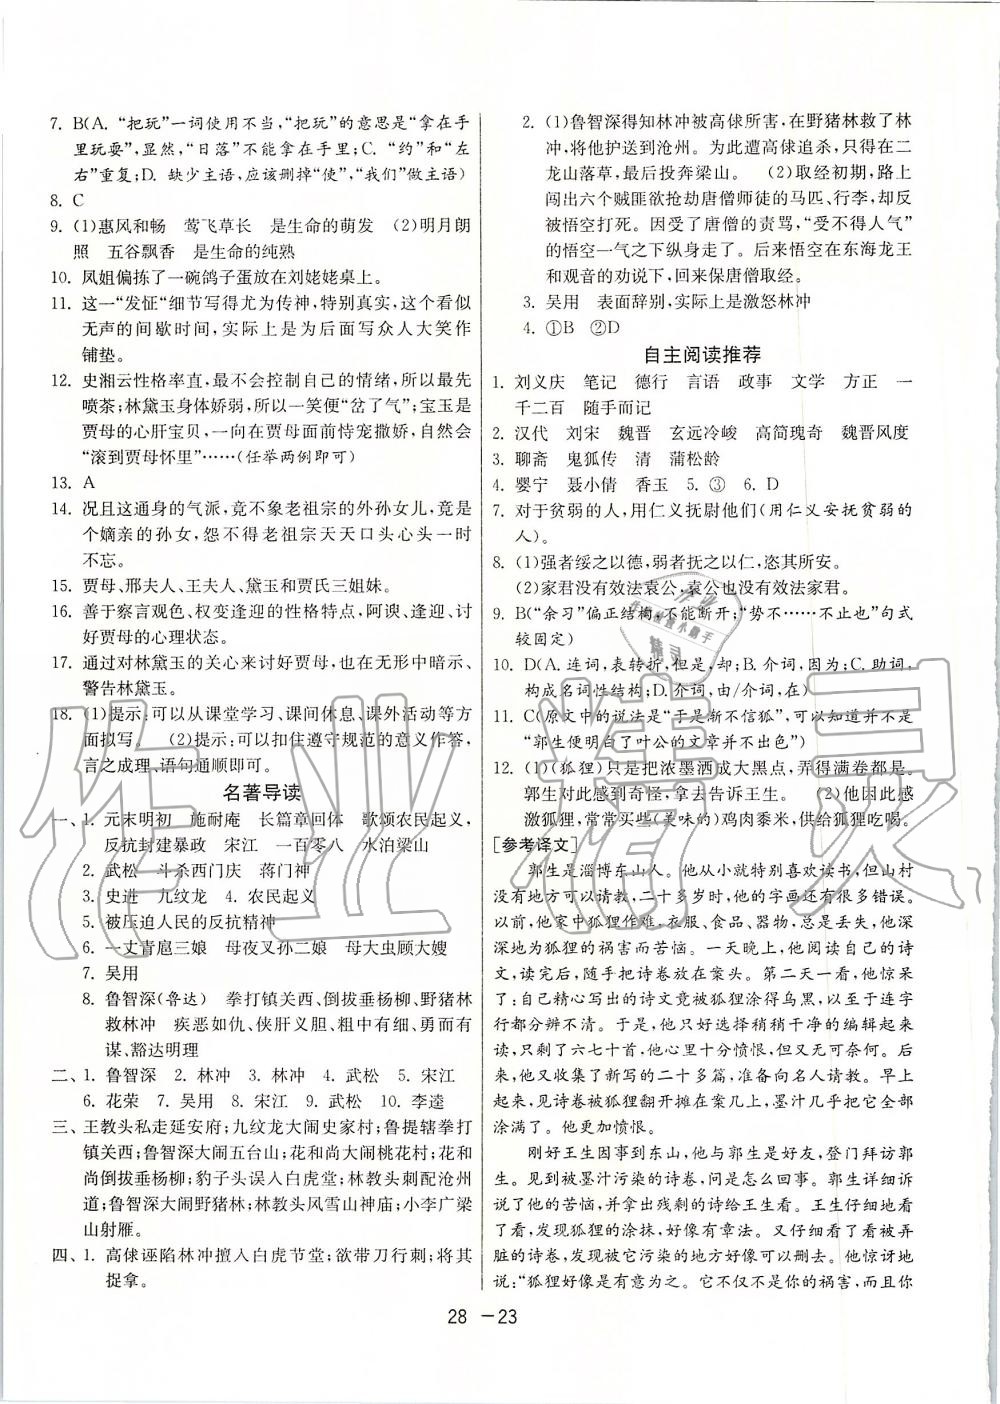 7. B(A. “把玩”一词使用不当,“把玩”的意思是“拿在手
里玩耍”,显然,“日落”不能拿在手里;C. “约”和“左
右”重复;D. 缺少主语,应该删掉“使”,“我们”做主语)
8. C
9. (1)惠风和畅 莺飞草长 是生命的萌发 (2)明月朗
照 五谷飘香 是生命的纯熟
10. 凤姐偏拣了一碗鸽子蛋放在刘姥姥桌上。
11. 这一“发怔”细节写得尤为传神,特别真实,这个看似
无声的间歇时间,实际上是为后面写众人大笑作
铺垫。
12. 史湘云性格率直,最不会控制自己的情绪,所以最先
喷茶;林黛玉身体娇弱,所以一笑便“岔了气”;宝玉是
贾母的心肝宝贝,一向在贾母面前恃宠撒娇,自然会
“滚到贾母怀里”……(任举两例即可)
13. A
14. 况且这通身的气派,竟不象老祖宗的外孙女儿,竟是
个嫡亲的孙女,怨不得老祖宗天天口头心头一时
不忘。
15. 贾母、邢夫人、王夫人、黛玉和贾氏三姐妹。
16. 善于察言观色、权变逢迎的性格特点,阿谀、逢迎、讨
好贾母的心理状态。
17. 通过对林黛玉的关心来讨好贾母,也在无形中暗示、
警告林黛玉。
18. (1)提示:可以从课堂学习、课间休息、课外活动等方
面拟写。 (2)提示:可以扣住遵守规范的意义作答,
言之成理、语句通顺即可。
名著导读
一、1. 元末明初 施耐庵 长篇章回体 歌颂农民起义,
反抗封建暴政 宋江 一百零八 水泊梁山
2. 武松 斗杀西门庆 蒋门神
3. 史进 九纹龙 4. 农民起义
5. 被压迫人民的反抗精神
6. 一丈青扈三娘 母夜叉孙二娘 母大虫顾大嫂
7. 吴用
8. 鲁智深(鲁达) 拳打镇关西、倒拔垂杨柳、野猪林
救林冲 疾恶如仇、侠肝义胆、粗中有细、勇而有
谋、豁达明理
二、1. 鲁智深 2. 林冲 3. 林冲 4. 武松 5. 宋江
6. 花荣 7. 吴用 8. 宋江 9. 武松 10. 李逵
三、王教头私走延安府;九纹龙大闹史家村;鲁提辖拳打
镇关西;鲁智深大闹五台山;花和尚大闹桃花村;花和
尚倒拔垂杨柳;豹子头误入白虎堂;林教头刺配沧州
道;鲁智深大闹野猪林;林教头风雪山神庙;小李广梁
山射雁。
四、1. 高俅诬陷林冲擅入白虎节堂;欲带刀行刺;将其
捉拿。
2. (1)鲁智深得知林冲被高俅所害,在野猪林救了林
冲,将他护送到沧州。为此遭高俅追杀,只得在二
龙山落草,最后投奔梁山。 (2)取经初期,路上
闯出六个贼匪欲抢劫唐僧师徒的马匹、行李,却反
被悟空打死。因受了唐僧的责骂,“受不得人气”
的悟空一气之下纵身走了。后来悟空在东海龙王
和观音的劝说下,回来保唐僧取经。
3. 吴用 表面辞别,实际上是激怒林冲
4. ①B ②D
自主阅读推荐
1. 刘义庆 笔记 德行 言语 政事 文学 方正 一
千二百 随手而记
2. 汉代 刘宋 魏晋 玄远冷峻 高简瑰奇 魏晋风度
3. 聊斋 鬼狐传 清 蒲松龄
4. 婴宁 聂小倩 香玉 5. ③ 6. D
7. 对于贫弱的人,用仁义抚慰他们(用仁义安抚贫弱的
人)。
8. (1)强者绥之以德,弱者抚之以仁,恣其所安。
(2)家君没有效法袁公,袁公也没有效法家君。
9. B(“余习”偏正结构,不能断开;“势不……不止也”句式
较固定)
10. D(A. 连词,表转折,但是,却;B. 介词,因为;C. 助词,
构成名词性结构;D. 介词,由/介词,在)
11. C(原文中的说法是“于是渐不信狐”,可以知道并不是
“郭生便明白了叶公的文章并不出色”)
12. (1)(狐狸)只是把浓墨洒成大黑点,弄得满卷都是。
郭生对此感到奇怪,拿去告诉王生。 (2)因此感
激狐狸,常常买些(美味的)鸡肉黍米,供给狐狸吃喝。
[参考译文]
郭生是淄博东山人。他从小就特别喜欢读书,但山村
没有地方可以请教,二十多岁时,他的字画还有很多错误。
以前,他家中狐狸作难,衣服、食品、器物,总是丢失,他深
深地为狐狸的祸害而苦恼。一天晚上,他阅读自己的诗
文,读完后,随手把诗卷放在案头。第二天一看,他惊呆
了:自己精心写出的诗文竟被狐狸涂得乌黑,以至于连字
行都分辨不清。于是,他只好选择稍稍干净的编辑起来
读,只剩了六七十首,他心里十分愤恨,但又无可奈何。后
来,他又收集了新写的二十多篇,准备向名人请教。早上
起来,见诗卷被狐狸翻开摊在案几上,墨汁几乎把它全部
涂满了。他更加愤恨。
刚好王生因事到东山,他与郭生是好友,登门拜访郭
生。见到被墨汁污染的诗卷,问是怎么回事。郭生详细诉
说了他的苦恼,并拿出残剩的诗给王生看。王生仔细地看
了看,发现狐狸的涂抹,好像有章法。又仔细看了看被弄
脏的诗卷,发现被它污染的地方好像可以删去。他惊讶地
说:“狐狸好像是有意为之。它不仅不是你的祸害,而且你
28 －23
作业精灵